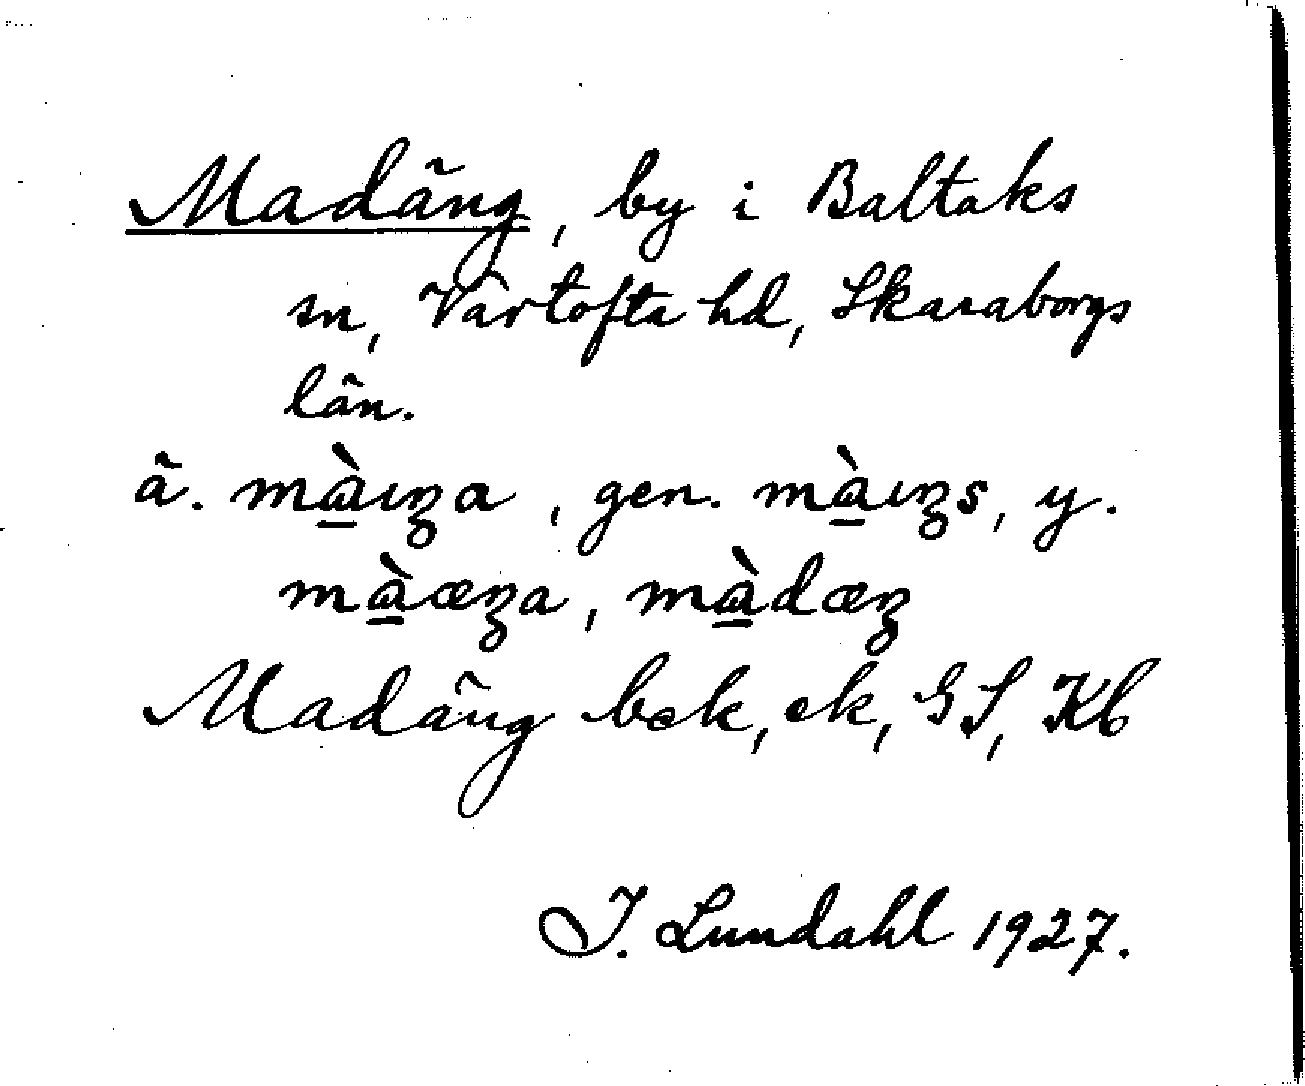 Madäng, by i Baltaks
sn, Vartofta hd, Skaraborgs
län.
ä. mɑ̠̀ıꜫa, gen. mɑ̠̀ıꜫs, y.
mɑ̠̀æꜫa, mɑ̠̀dæꜫ
Madäng bek, ek, GS, Kb
I. Lundahl 1927.